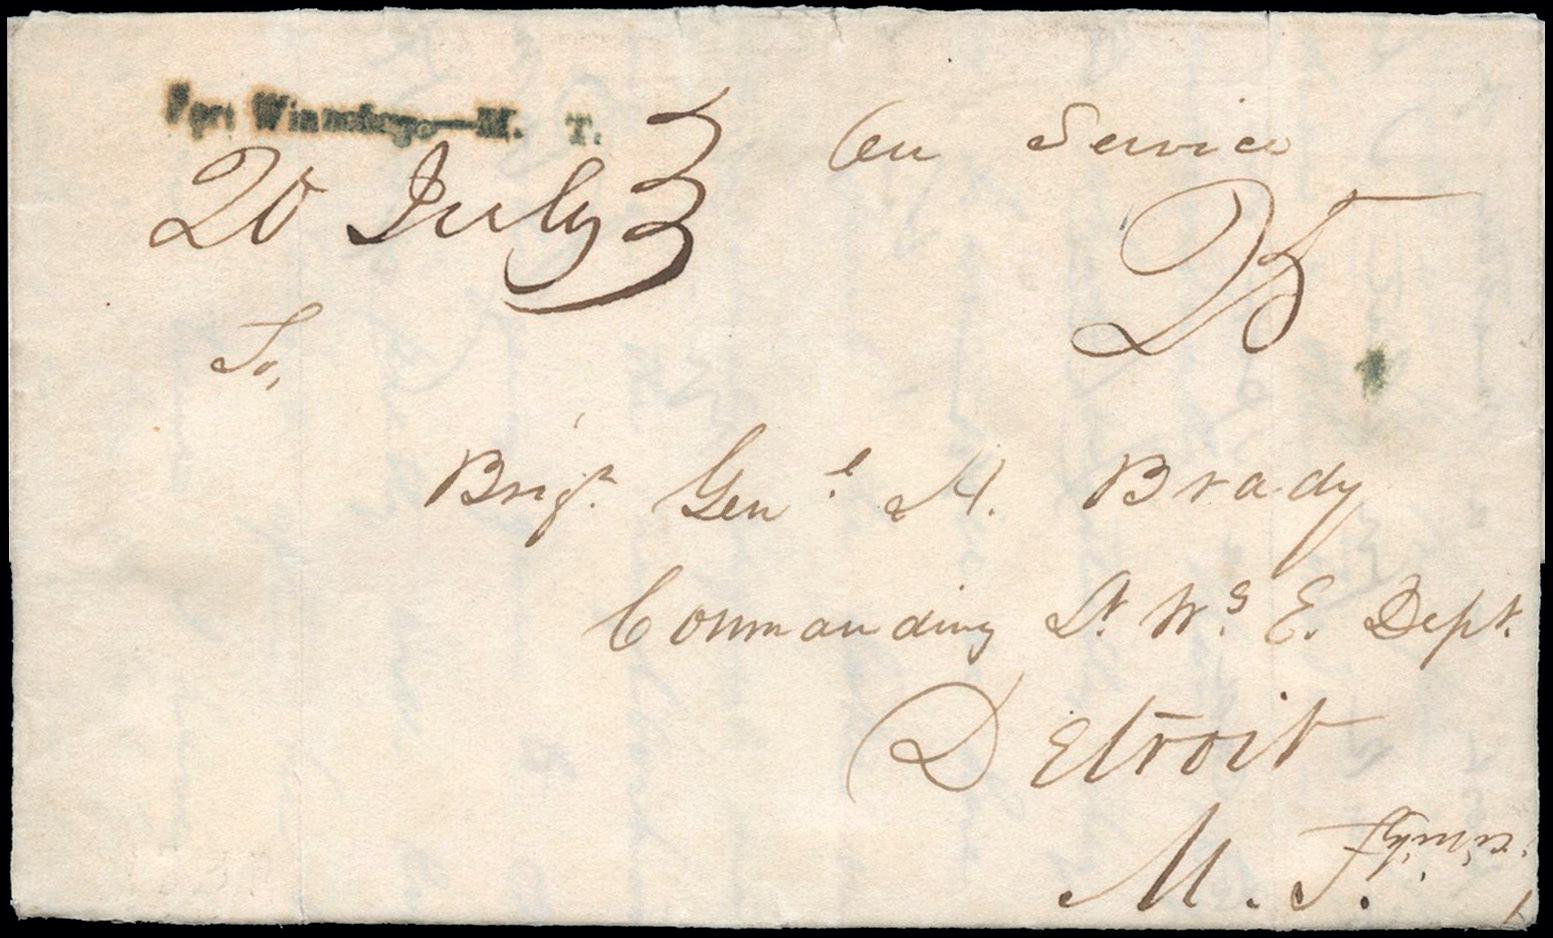 Fort Winnebago—M. T.
On Service
20 July
25
To,
Brigr. Genl. H. Brady
Commanding Lt. Ws. E. Dept.
Detroit
M. T.